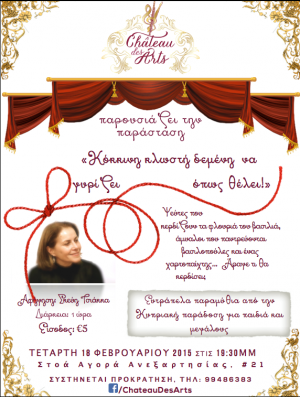 Château
des
Arts
παρουσιάζει την
παράσταση
«Κόκκινη κλωστή δεμένη να
γυρίζει όπως θέλει!»
Ψεύτες που
κερδίζουν τα φλουριά του βασιλιά,
άμυαλοι που παντρεύονται
βασιλοπούλες και ένας
χαρτοπαίχτης... Άραγε τι θα
κερδίσει;
Αφήγηση:
Διάρκεια 1 ώρα
Είσοδος: €5
Ευτράπελα παραμύθια από την
Κυπριακή παράδοση για παιδιά και
μεγάλους
ΤΕΤΑΡΤΗ 18 ΦΕΒΡΟΥΑΡΙΟΥ 2015 ΣΤΙΣ 19:30ΜΜ
Στοά Αγορά Ανεξαρτησίας, #21
ΣΥΣΤΗΝΕΤΑΙ ΠΡΟΚΡΑΤΗΣΗ, ΤΗΛ: 99486383
f/ChateauDesArts